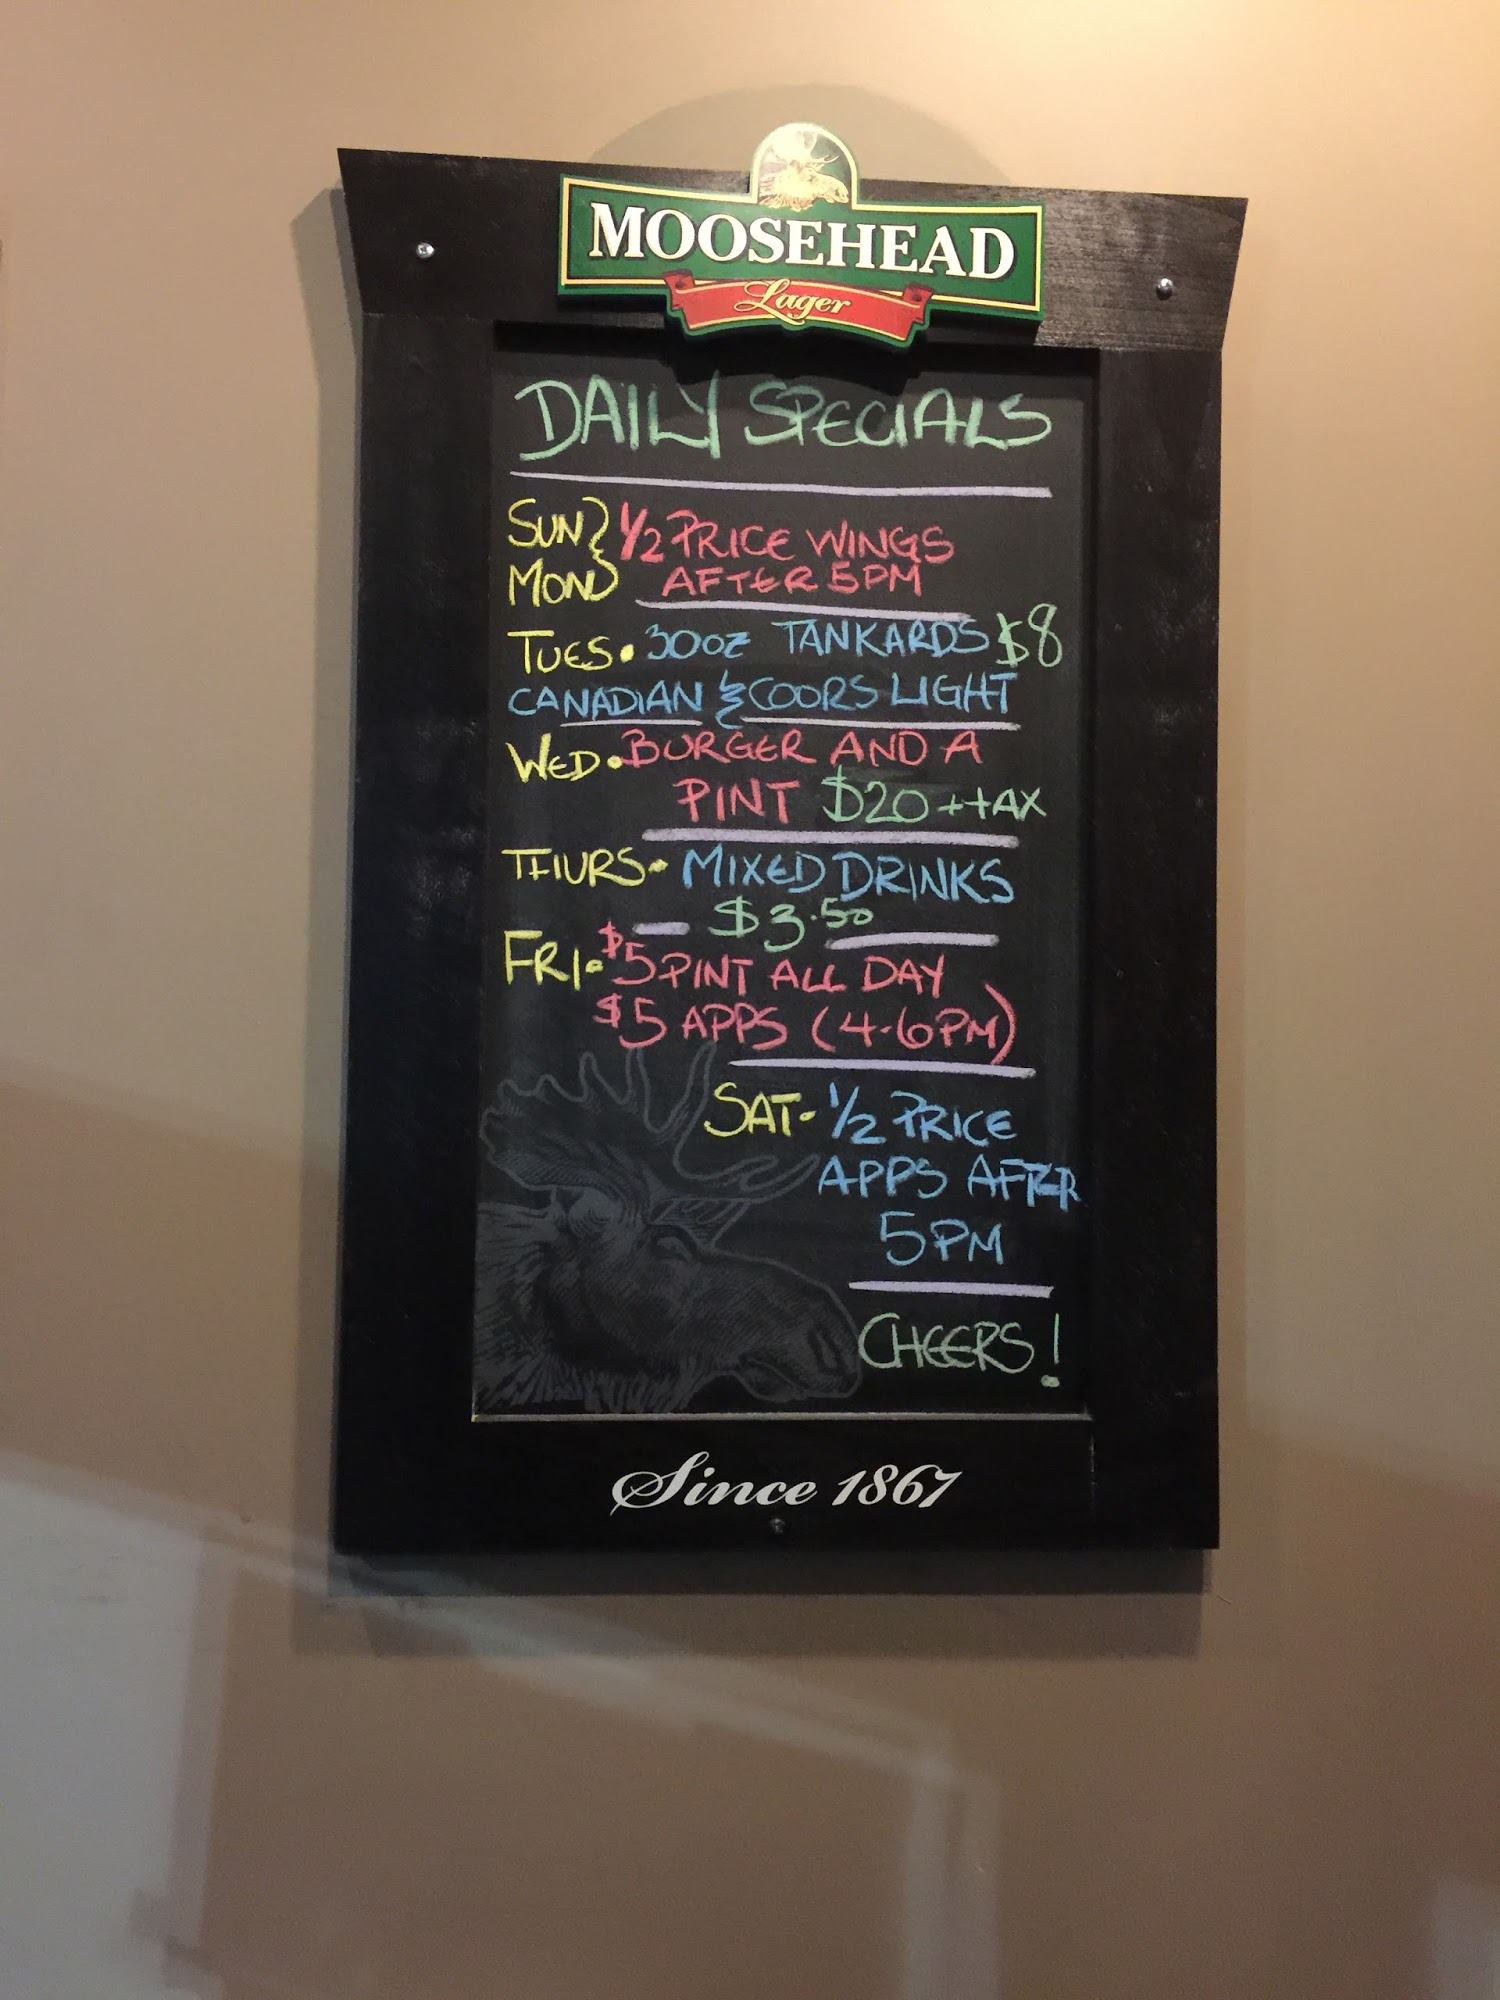 MOOSEHEAD
Lager
DAILY SPECIALS
SUN } 1/2 PRICE WINGS
MON } AFTER 5PM
TUES. 30oz TANKARDS $8
CANADIAN & COORS LIGHT
WED. BURGER AND A
PINT $20 + TAX
THURS- MIXED DRINKS
$3.50
FRI- $5 PINT ALL DAY
$5 APPS (4-6PM)
SAT- 1/2 PRICE
APPS AFTER
5PM
CHEERS!
Since 1867